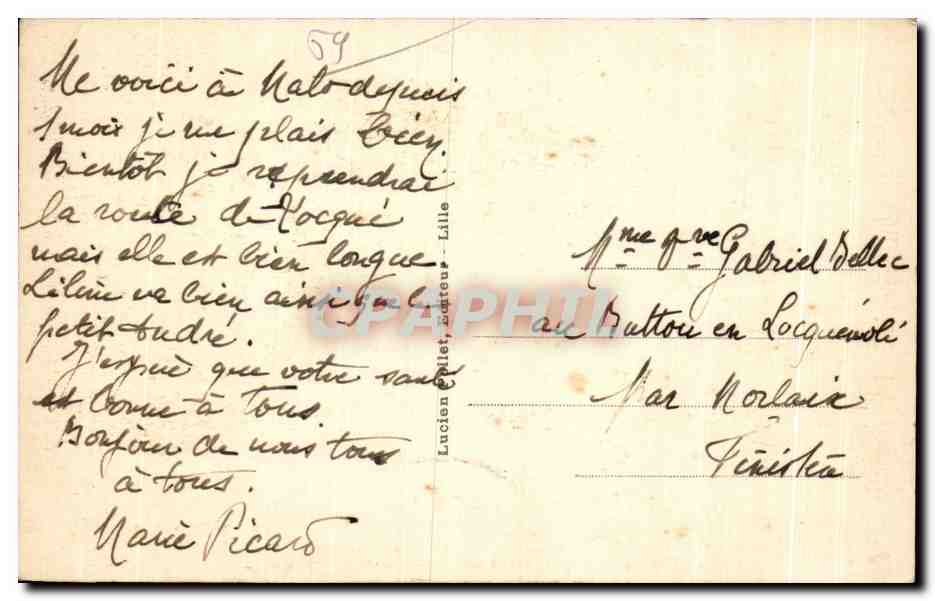 59
Me voici à Malo depuis
1 mois je me plais bien.
Bientôt je reprendrai
la route de Locqué
mais elle est bien longue
Liline va bien ainsi que le
petit André.
J'espère que votre santé
est bonne à tous.
Bonjour de nous tous
à tous.
Marie Picard
Lucien Pollet, Editeur - Lille
CPAPHIL
Mme Vve Gabriel Bellec
au Button en Locquénolé
Par Morlaix
Finistère